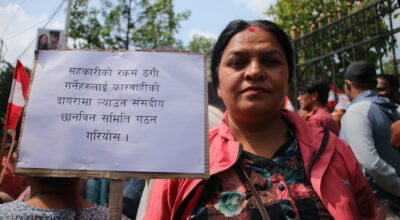 सहकारीको रकम ठगी
गर्नेहरुलाई कारवाहीको
दायरामा ल्याउन संसदीय
छानविन समिति गठन
गरियोस ।